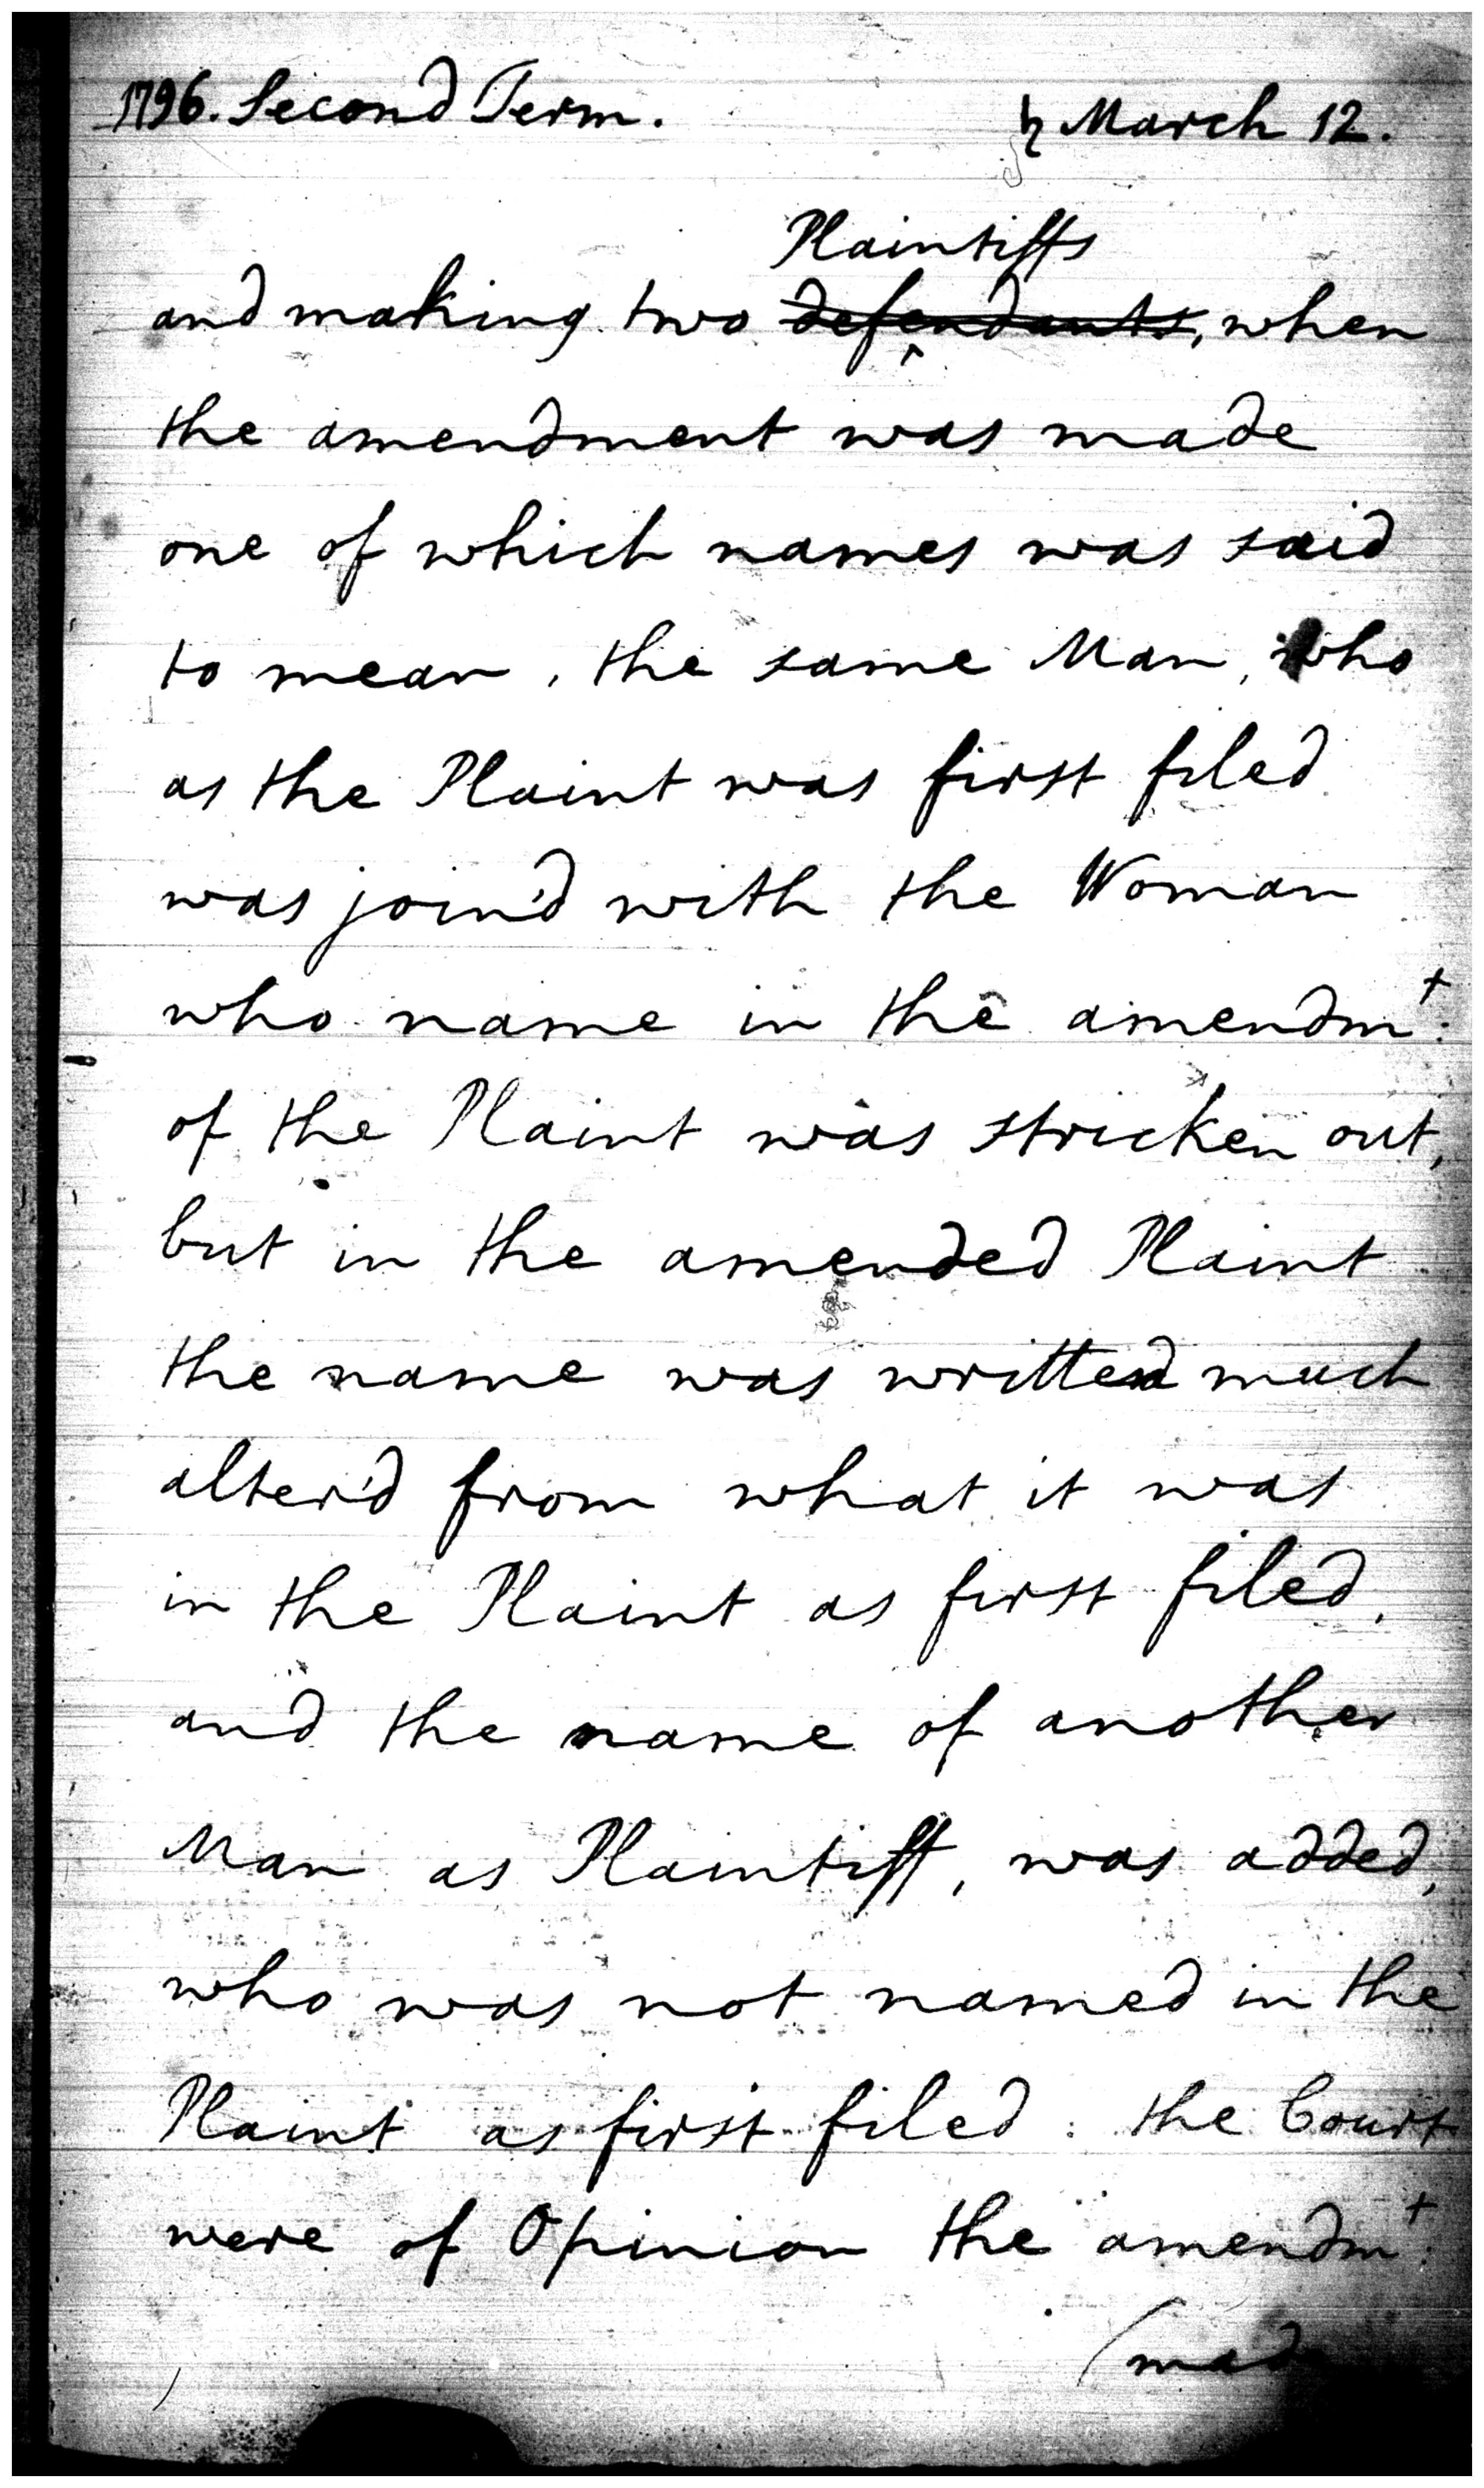 1796. Second Term. ♄ March 12.
Plaintiffs
and making two defendants, when
the amendment was made
one of which names was said
to mean, the same Man, who
as the Plaint was first filed
was join'd with the Woman
who name in the amendmt.
of the Plaint was stricken out,
but in the amended Plaint
the name was written much
alter'd from what it was
in the Plaint as first filed,
and the name of another
Man as Plaintiff, was added,
who was not named in the
Plaint as first filed: the Court
were of Opinion the amendmt:
(made